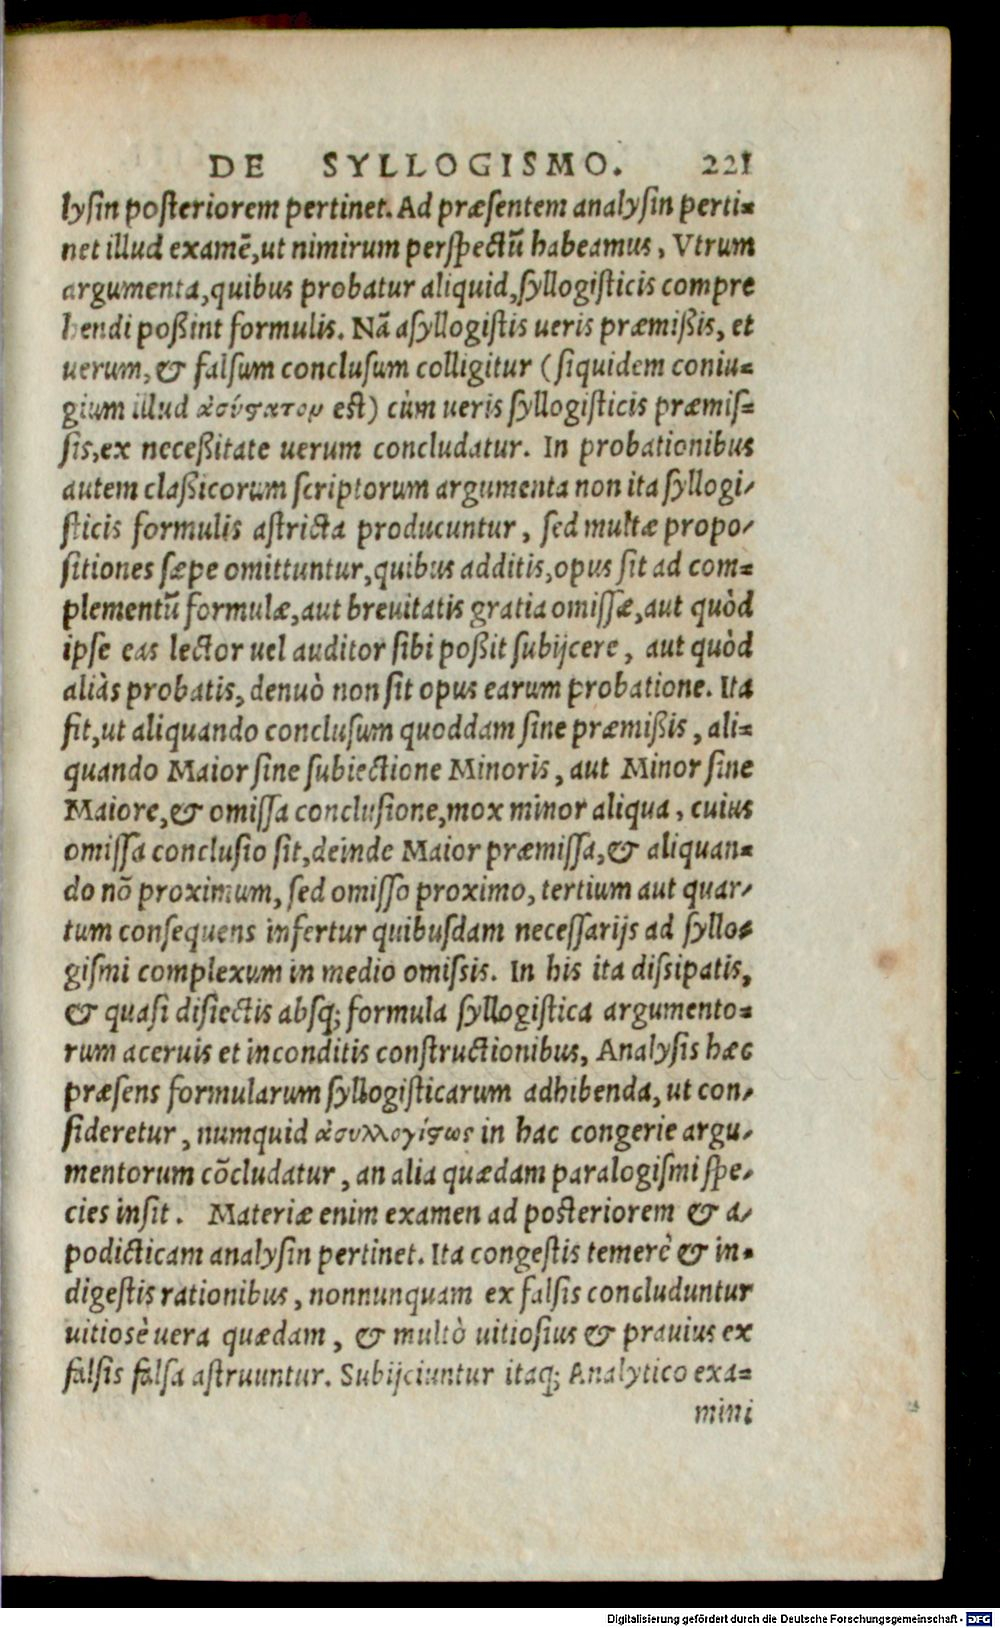 DE SYLLOGISMO. 221
lysin posteriorem pertinet. Ad præsentem analysin perti=
net illud examẽ, ut nimirum perspectũ habeamus, Vtrum
argumenta, quibus probatur aliquid, syllogisticis compre
hendi poßint formulis. Nã asyllogistis ueris præmißis, et
uerum, & falsum conclusum colligitur (siquidem coniu=
gium illud ἀσύστατον est) cùm ueris syllogisticis præmis=
sis, ex neceßitate uerum concludatur. In probationibus
autem claßicorum scriptorum argumenta non ita syllogi/
sticis formulis astricta producuntur, sed multæ propo/
sitiones sæpe omittuntur, quibus additis, opus sit ad com=
plementũ formulæ, aut breuitatis gratia omissæ, aut quòd
ipse eas lector uel auditor sibi poßit subijcere, aut quòd
aliàs probatis, denuò non sit opus earum probatione. Ita
fit, ut aliquando conclusum quoddam sine præmißis, ali=
quando Maior sine subiectione Minoris, aut Minor sine
Maiore, & omissa conclusione, mox minor aliqua, cuius
omissa conclusio sit, deinde Maior præmissa, & aliquan=
do nõ proximum, sed omisso proximo, tertium aut quar/
tum consequens infertur quibusdam necessarijs ad syllo=
gismi complexum in medio omissis. In his ita dissipatis,
& quasi disiectis absq; formula syllogistica argumento=
rum aceruis et inconditis constructionibus, Analysis hæc
præsens formularum syllogisticarum adhibenda, ut con/
sideretur, numquid ἀσυλλογίστως in hac congerie argu/
mentorum cõcludatur, an alia quædam paralogismi spe/
cies insit. Materiæ enim examen ad posteriorem & a/
podicticam analysin pertinet. Ita congestis temerè & in=
digestis rationibus, nonnunquam ex falsis concluduntur
uitiosè uera quædam, & multò uitiosius & prauius ex
falsis falsa astruuntur. Subijciuntur itaq; Analytico exa=
mini
Digitalisierung gefördert durch die Deutsche Forschungsgemeinschaft - DFG